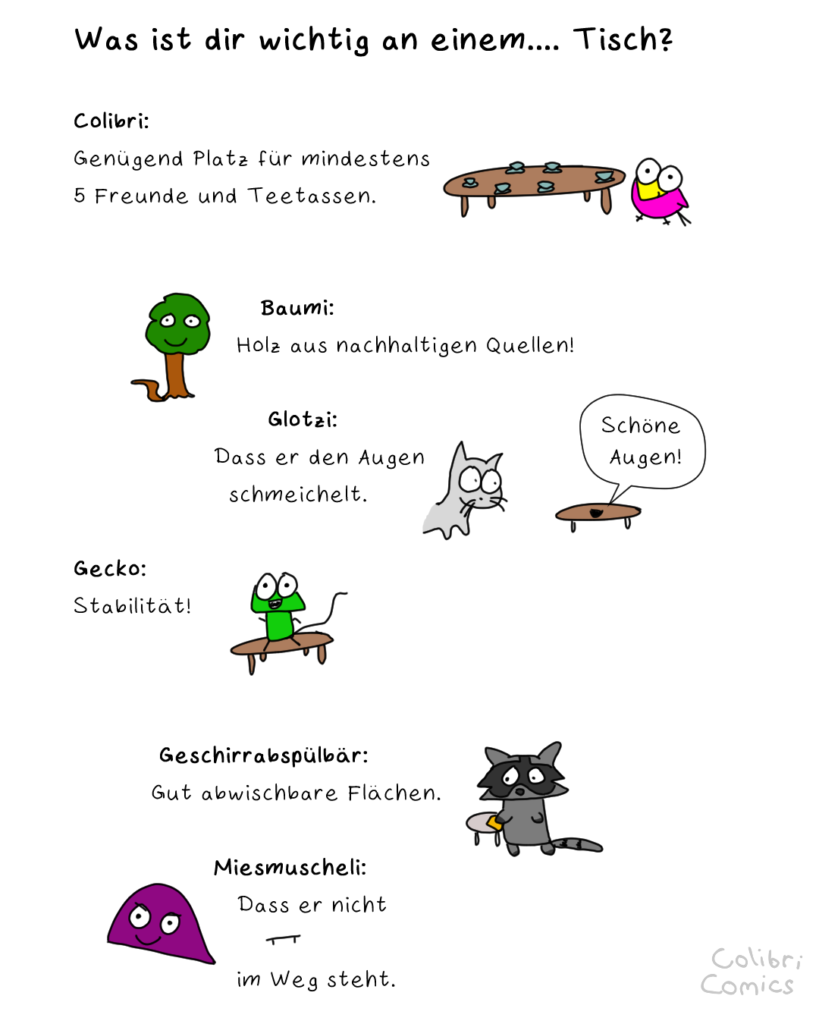 Was ist dir wichtig an einem.... Tisch?
Colibri:
Genügend Platz für mindestens
5 Freunde und Teetassen.
Baumi:
Holz aus nachhaltigen Quellen!
Glotzi:
Dass er den Augen
schmeichelt.
Schöne
Augen!
Gecko:
Stabilität!
Geschirrabspülbär:
Gut abwischbare Flächen.
Miesmuscheli:
Dass er nicht
im Weg steht.
Colibri
Comics